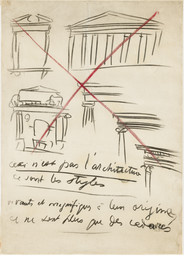 ceci n'est pas l'architecture
ce sont les styles
vivants et magnifiques à leur origine
ce ne sont plus que des cadavres